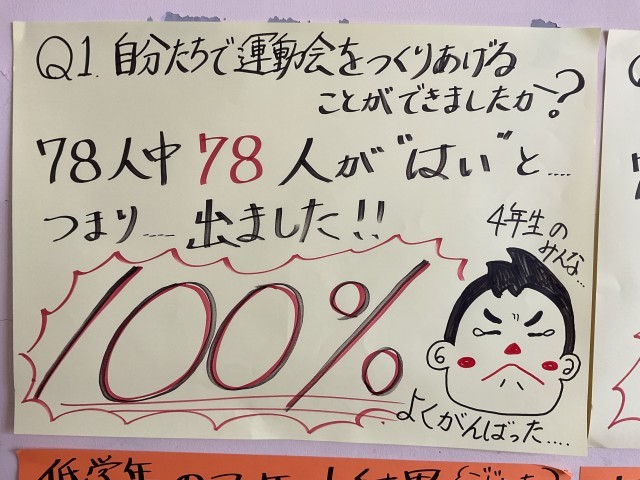 Q1. 自分たちで運動会をつくりあげる
ことができましたか?
78人中 78人が"はい"と....
つまり.... 出ました!!
100%
4年生の
みんな...
よくがんばった....
低学年